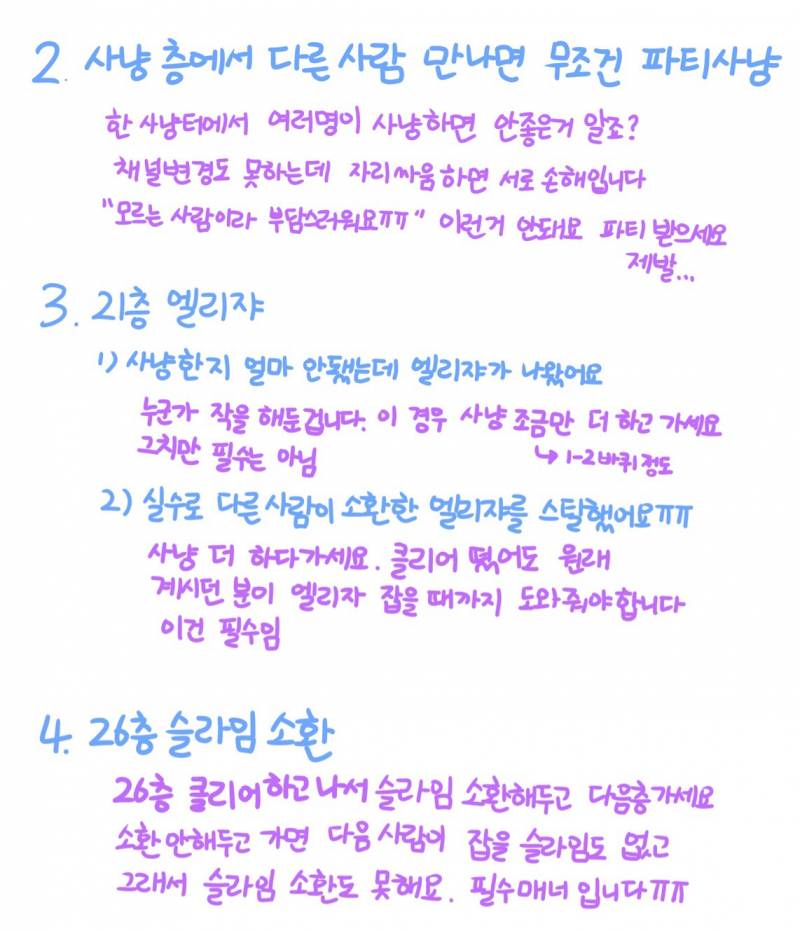 2. 사냥 층에서 다른 사람 만나면 무조건 파티사냥
한 사냥터에서 여러명이 사냥하면 안좋은거 알죠?
채널변경도 못하는데 자리싸움하면 서로 손해입니다
"모르는 사람이라 부담스러워요ㅠㅠ" 이런거 안돼요 파티 받으세요
제발...
3. 21층 엘리쟈
1) 사냥한지 얼마 안됐는데 엘리쟈가 나왔어요
누군가 작을 해둔겁니다. 이 경우 사냥 조금만 더 하고 가세요
그치만 필수는 아님
↳ 1-2바퀴 정도
2) 실수로 다른 사람이 소환한 엘리쟈를 스틸했어요ㅠㅠ
사냥 더 하다가세요. 클리어 떴어도 원래
계시던 분이 엘리자 잡을 때까지 도와줘야합니다
이건 필수임
4. 26층 슬라임 소환
26층 클리어하고 나서 슬라임 소환해두고 다음층가세요
소환 안해두고 가면 다음 사람이 잡을 슬라임도 없고
그래서 슬라임 소환도 못해요. 필수매너 입니다ㅠㅠ